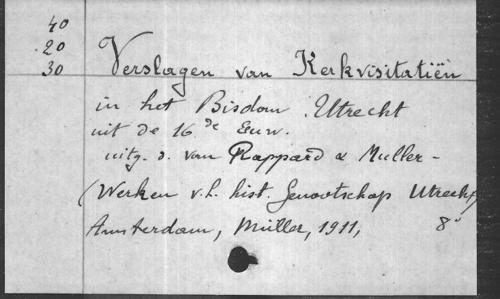 40
20
30
Verslagen van Kerkvisitatiën
in het Bisdom Utrecht
uit de 16de Eeuw.
uitg. d. van Rappard & Muller -
(Werken v.h. hist. Genootschap Utrecht)
Amsterdam, Müller, 1911, 8°